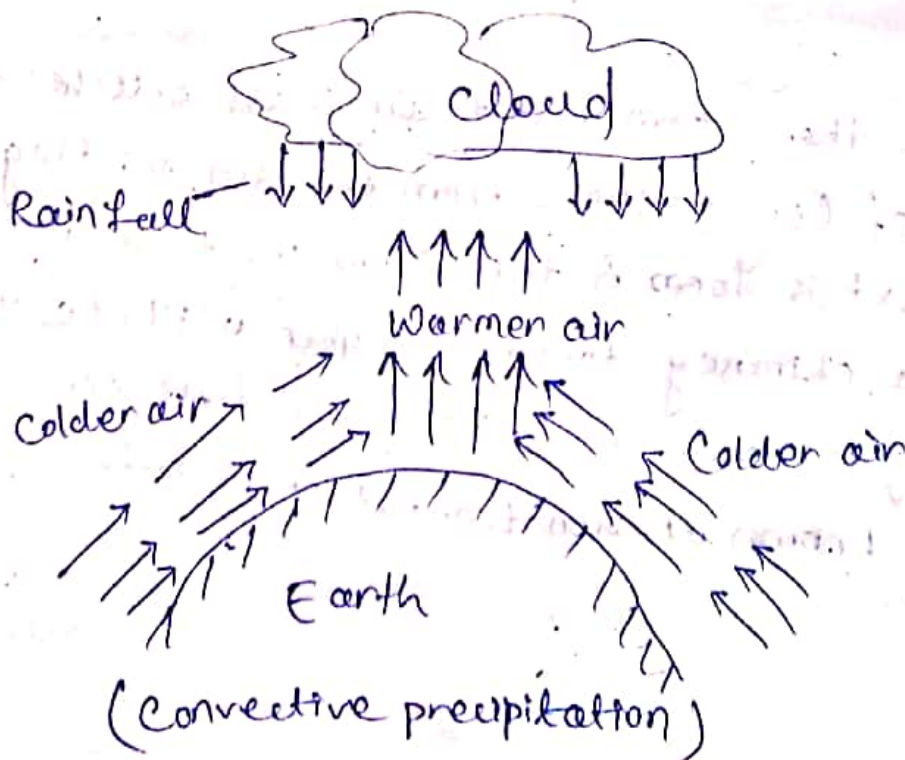 Cloud
Rainfall
Warmer air
Colder air
Colder air
Earth
(Convective precipitation)